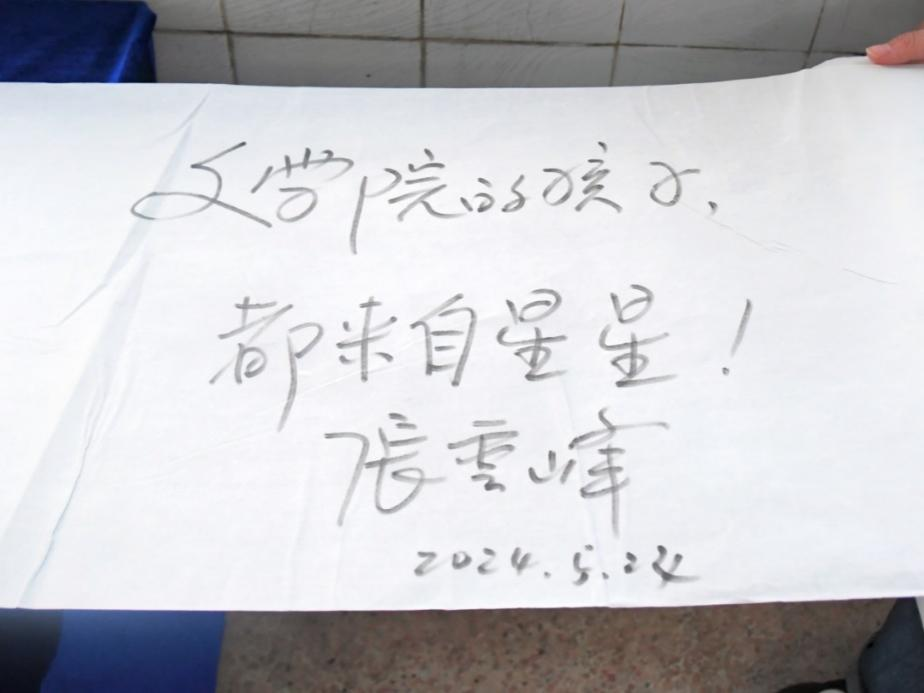 文学院的孩子、
都来自星星！
張雲峰
2024.5.24